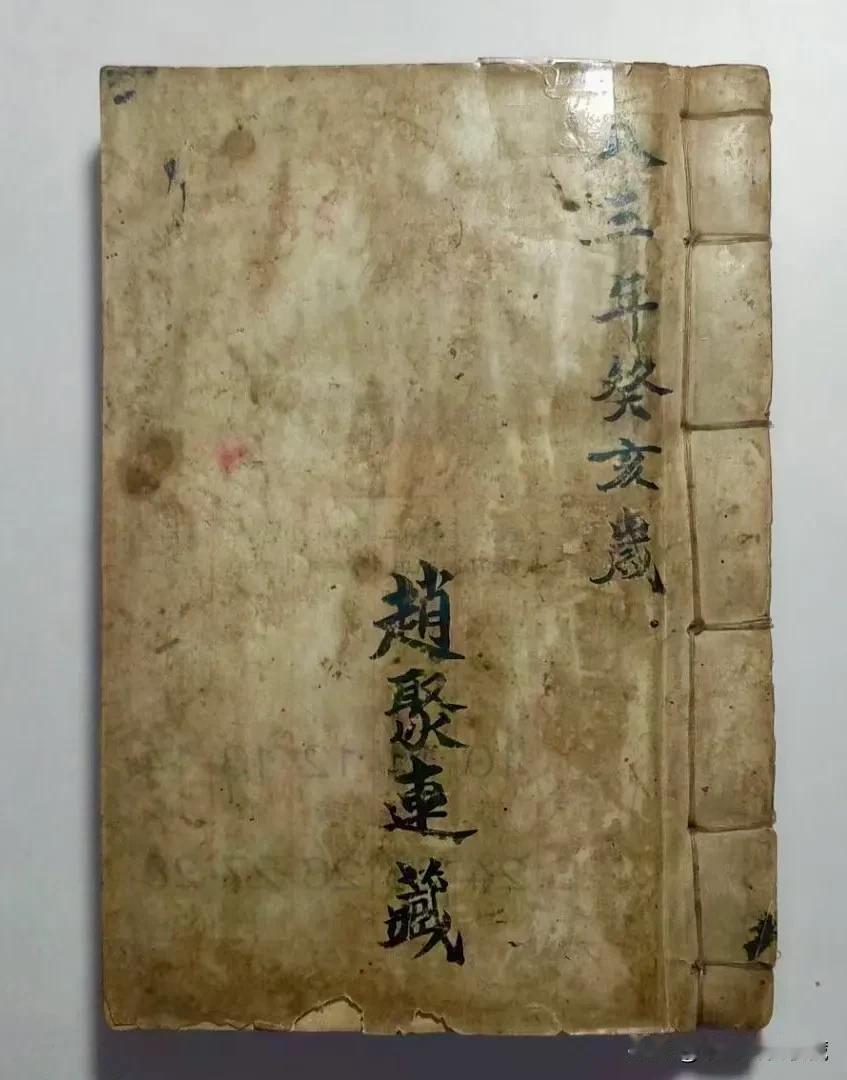 八三年癸亥歲
趙聚連藏